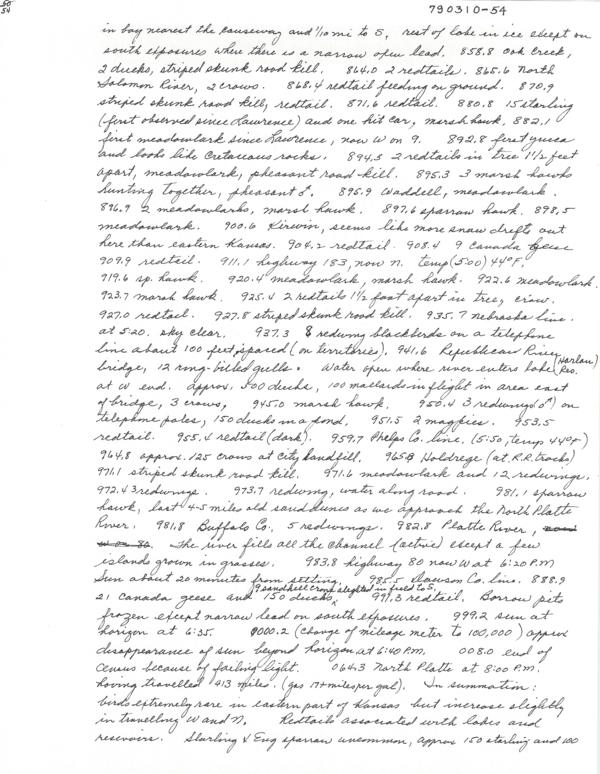 50
54
790310-54
in bay nearest the causeway and 1/10 mi to S, rest of lake in ice except on
south exposures where there is a narrow open lead. 858.8 Oak Creek,
2 ducks, striped skunk road kill. 864.0 2 redtails. 865.6 North
Solomon River, 2 crows. 868.4 redtail feeding on ground. 870.9
striped skunk road kill, redtail. 871.6 redtail. 880.8 15 starling
(first observed since Lawrence) and one kit car, marsh hawk, 882.1
first meadowlark since Lawrence, now W on 9. 892.8 first yucca
and looks like Cretaceous rocks. 894.3 2 redtails in tree 1 1/2 feet
apart, meadowlark, pheasant road kill. 895.3 3 marsh hawks
hunting together, pheasant ♂. 895.9 Waddell, meadowlark.
896.9 2 meadowlarks, marsh hawk. 897.6 sparrow hawk. 898.5
meadowlark. 900.6 Kirwin, seems like more snow drifts out
here than eastern Kansas. 904.2 redtail. 908.4 9 Canada geese
909.9 redtail. 911.1 highway 183, now N. temp (5:00) 44°F.
919.6 sp. hawk. 920.4 meadowlark, marsh hawk. 922.6 meadowlark.
923.7 marsh hawk. 925.4 2 redtails 1 1/2 foot apart in tree, crow.
927.0 redtail. 927.8 striped skunk road kill. 935.7 Nebraska line.
at 5:20. sky clear. 937.3 8 redwing blackbirds on a telephone
line about 100 feet spaced (on territories). 941.6 Republican River (Harlan Res.
bridge, 12 ring-billed gulls. Water open where river enters lake
at W end. approx. 500 ducks, 100 mallards in flight in area east
of bridge, 3 crows, 945.0 marsh hawk. 950.4 3 redwings (♂) on
telephone poles, 150 ducks in a pond. 951.5 2 magpies. 953.5
redtail. 955.4 redtail (dark). 959.7 Phelps Co. line. (5:50, temp 44°F)
964.8 approx. 125 crows at city landfill. 965.8 Holdrege (at R.R. tracks)
971.1 striped skunk road kill. 971.6 meadowlark and 12 redwings.
972.4 3 redwings. 973.7 redwing, water along road. 981.1 sparrow
hawk, last 4-5 miles old sand dunes as we approach the North Platte
River. 981.8 Buffalo Co., 5 redwings. 982.8 Platte River,
The river fills all the channel (active) except a few
islands grown in grasses. 983.8 highway 80 now W at 6:20 P.M
Sun about 20 minutes from setting. 985.5 Dawson Co. line. 888.9
9 sandhill crane alighted in field to S,
21 Canada geese and 150 ducks, 991.3 redtail. Borrow pits
frozen except narrow lead on south exposures. 999.2 sun at
horizon at 6:35. 0000.2 (change of mileage meter to 100,000) approx
disappearance of sun beyond horizon at 6:40 P.M. 008.0 end of
census because of failing light. 064.3 North Platte at 8:00 P.M.
having travelled 413 miles. (gas 17+ miles per gal). In summation:
birds extremely rare in eastern part of Kansas but increase slightly
in travelling W and N. Redtails associated with lakes and
reservoirs. Starling & Eng sparrow uncommon, approx 150 starling and 100